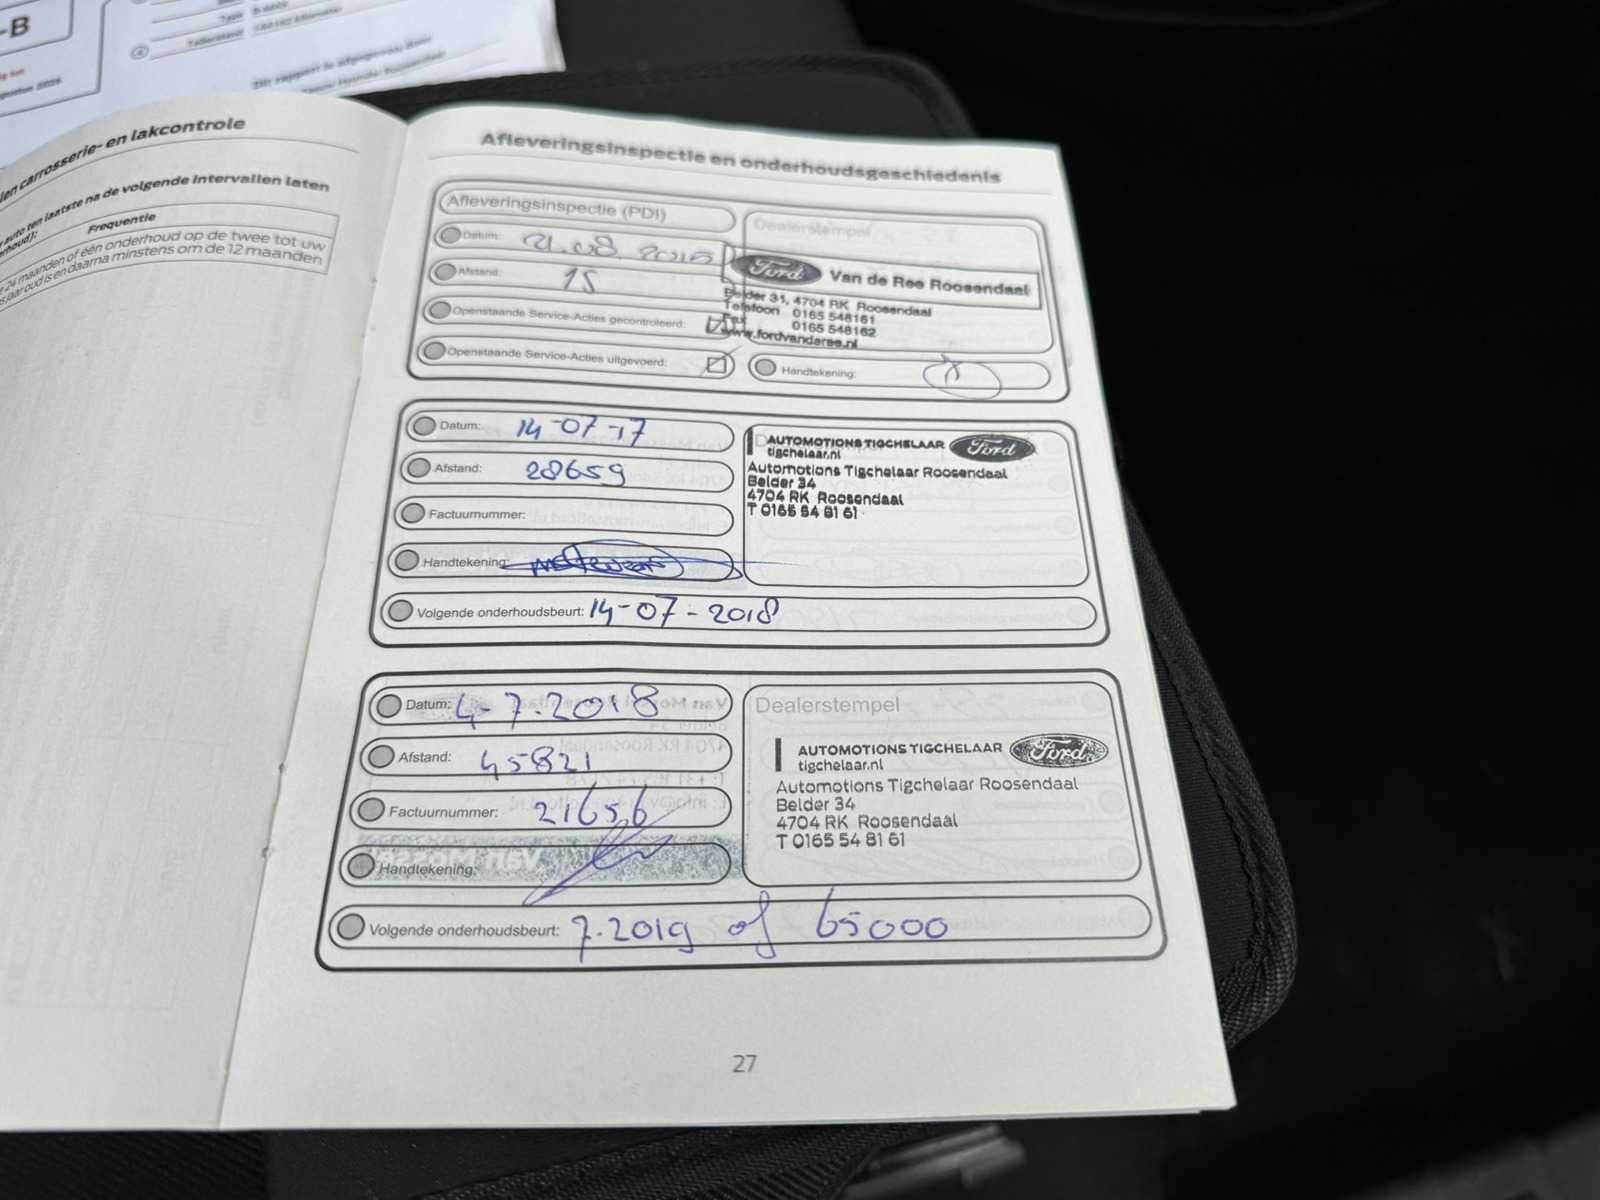 -B
Type
Tellerstand
Dit rapport is afgegeven door
Roosendaal
augustus 2026
en carrosserie- en lakcontrole
auto ten laatste na de volgende intervallen laten
Frequentie
24 maanden of één onderhoud op de twee tot uw
jaar oud is en daarna minstens om de 12 maanden
Afleveringsinspectie en onderhoudsgeschiedenis
Afleveringsinspectie (PDI)
Dealerstempel
Datum: 21.08.2015
Afstand: 15
Openstaande Service-Acties gecontroleerd:
Openstaande Service-Acties uitgevoerd:
Ford Van de Ree Roosendaal
Belder 31, 4704 RK Roosendaal
Telefoon 0165 548161
Fax 0165 548162
www.fordvanderee.nl
Handtekening:
Datum: 14-07-17
Afstand: 28659
Factuurnummer:
Handtekening:
Volgende onderhoudsbeurt: 14-07-2018
AUTOMOTIONS TIGCHELAAR Ford
tigchelaar.nl
Automotions Tigchelaar Roosendaal
Belder 34
4704 RK Roosendaal
T 0165 54 81 61
Datum: 4-7.2018
Afstand: 45821
Factuurnummer: 21656
Handtekening:
Volgende onderhoudsbeurt: 7.2019 of 65000
Dealerstempel
AUTOMOTIONS TIGCHELAAR Ford
tigchelaar.nl
Automotions Tigchelaar Roosendaal
Belder 34
4704 RK Roosendaal
T 0165 54 81 61
27